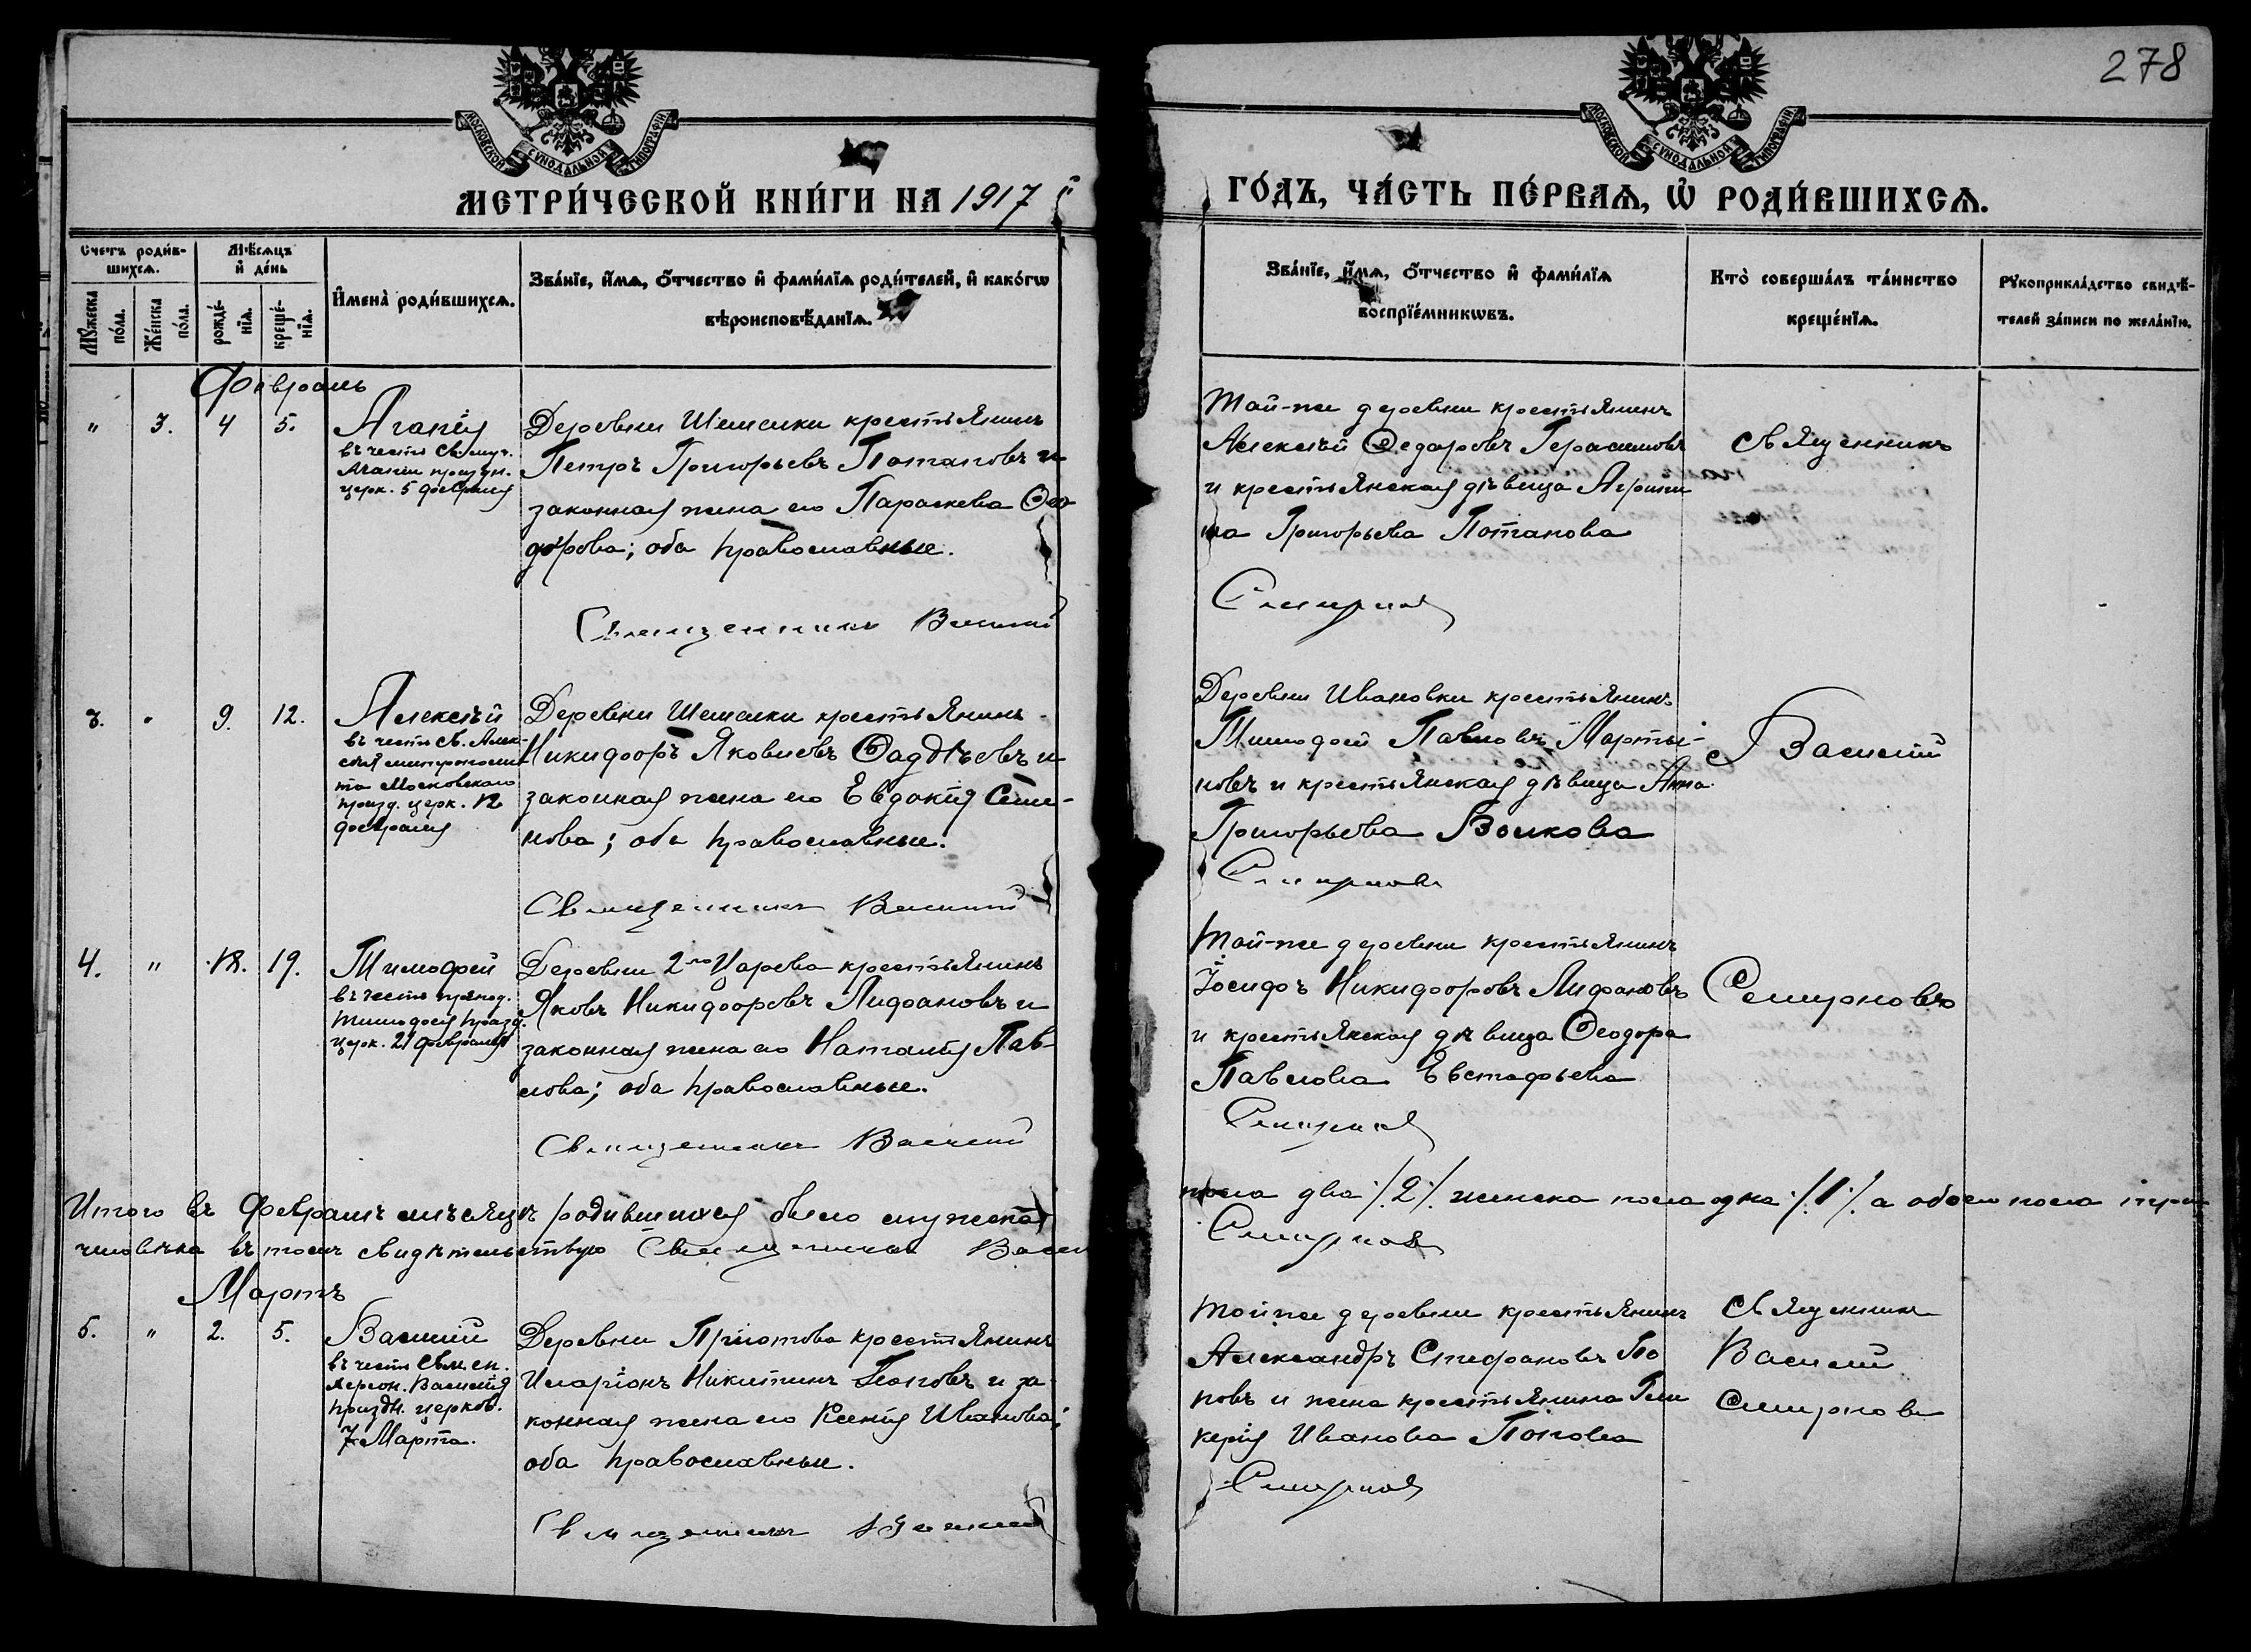 278
МОСКОВСКОЙ СУНОДАЛЬНОЙ ТИПОГРАФІИ
МОСКОВСКОЙ СУНОДАЛЬНОЙ ТИПОГРАФІИ
МЕТРИ́ЧЕСКОЙ КНИ́ГИ НА 1917 й
ГО́ДЪ, ЧА́СТЬ ПЕ́РВАѦ, Ѡ҆ РОДИ́ВШИХСѦ.
Счетъ роди́в-
шихсѧ.
Мѣ́сѧцъ
и҆ де́нь
Мꙋ́жеска
по́ла.
Же́нска
по́ла.
рожде́-
нїѧ.
креще́-
нїѧ.
И҆мена̀ роди́вшихсѧ.
Зва́нїе, и҆́мѧ, ѻ҆́тчество и҆ фами́лїѧ роди́телей, и҆ како́гѡ
вѣроисповѣ́данїѧ.
Зва́нїе, и҆́мѧ, ѻ҆́тчество и҆ фами́лїѧ
воспрїе́мникѡвъ.
Кто̀ соверша́лъ та́инство
креще́нїѧ.
Рꙋкоприкла́дство свидѣ́-
телей за́писи по жела́нїю.
Февраль
" 3. 4 5.
Агапія
въ честь Св. муч.
Агапіи праздн.
церк. 5 февраля
Деревни Шемалки крестьянинъ
Петръ Григорьевъ Потаповъ и
законная жена его Параскева Ѳео-
дорова; оба православные.
Священникъ Василій
Той-же деревни крестьянинъ
Алексѣй Ѳедоровъ Герасимовъ
и крестьянская дѣвица Агрипи
на Григорьева Потапова
Смирновъ
Священникъ
3. " 9. 12.
Алексѣй
въ честь св. Алек-
сѣя митрополи-
та Московскаго
празд. церк. 12
февраля
Деревни Шемалки крестьянинъ
Никифоръ Яковлевъ Ѳаддѣевъ и
законная жена его Евдокія Семе-
нова; оба православные.
Священникъ Василій
Деревни Ивановки крестьянинъ
Тимофей Павловъ Марты-
новъ и крестьянская дѣвица Анна
Григорьева Волкова
Смирновъ
Василій
4. " 18. 19.
Тимофей
въ честь препод.
Тимофея празд.
церк. 21 февраля
Деревни 2го Царева крестьянинъ
Яковъ Никифоровъ Лифановъ и
законная жена его Наталія Пав-
лова; оба православные.
Священникъ Василій
Той-же деревни крестьянинъ
Іосифъ Никифоровъ Лифановъ
и крестьянская дѣвица Ѳеодора
Павлова Евстафьева
Смирновъ
Смирновъ
Итого въ Февралѣ мѣсяцѣ родившихся было мужска
пола два /.2./ женска пола одна /.1./ а обоего пола три
человѣка въ томъ свидѣтельствую Священникъ Васил
Смирновъ
Мартъ
5. " 2. 5.
Василій
въ честь Свмен.
Херсон. Василія
праздн. церков.
7 Марта.
Деревни Пріютова крестьянинъ
Иларіонъ Никитинъ Поповъ и за-
конная жена его Ксенія Иванова;
оба православные.
Священникъ Василій
Той же деревни крестьянинъ
Александръ Стефановъ По
повъ и жена крестьянина Гли
керія Иванова Попова
Смирновъ
Священникъ
Василій
Смирновъ